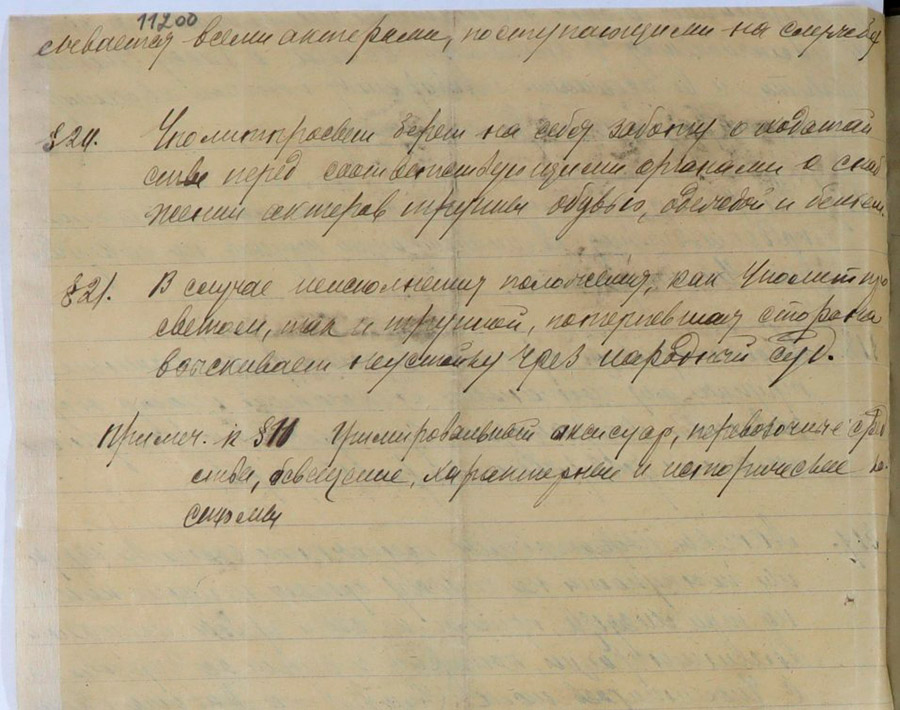 11200
сывается всеми актерами, поступающими на службу
§ 20. Уполитпросвет берет на себя заботу о ходатай
стве перед соответствующими органами о снаб
жении актеров труппы обувью, одеждой и бельем.
§ 21. В случае неисполнения положения, как Уполитпро
светом, так и труппой, потерпевшая сторона
взыскивает неустойку чрез народный суд.
Примеч. к § 11 Гримировальный аксесуар, перевозочные сред
ства, освещение, характерные и исторические ко
стюмы